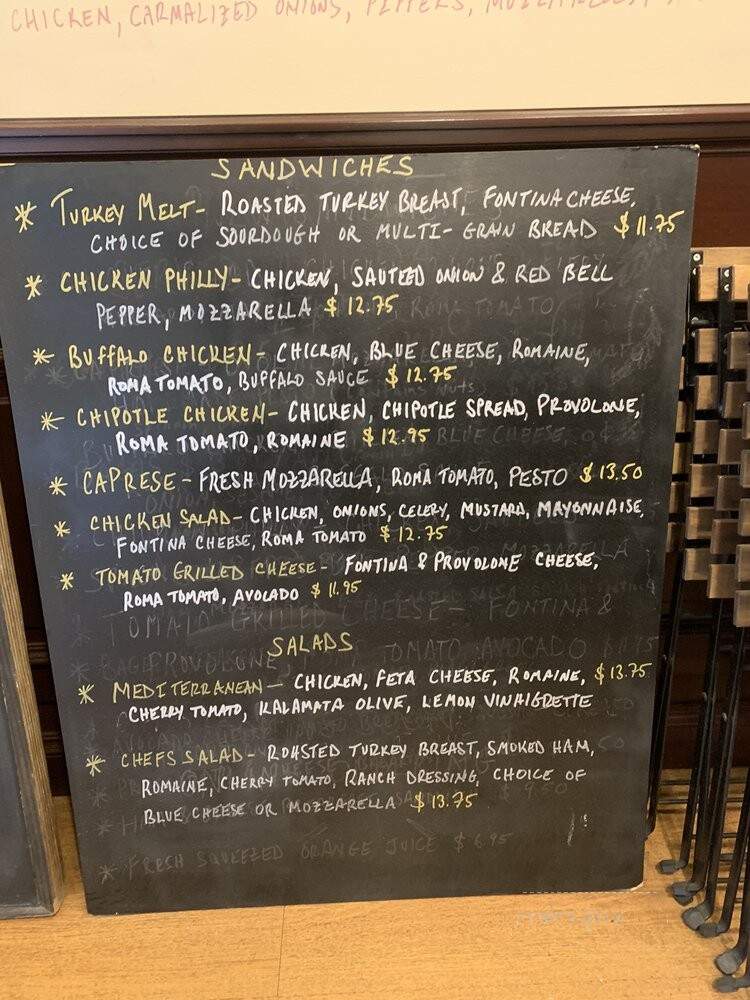 CHICKEN, CARMALIZED ONIONS, PEPPERS,
SANDWICHES
* TURKEY MELT - ROASTED TURKEY BREAST, FONTINA CHEESE,
CHOICE OF SOURDOUGH OR MULTI-GRAIN BREAD $11.75
* CHICKEN PHILLY - CHICKEN, SAUTEED ONION & RED BELL
PEPPER, MOZZARELLA $12.75
* BUFFALO CHICKEN - CHICKEN, BLUE CHEESE, ROMAINE,
ROMA TOMATO, BUFFALO SAUCE $12.75
* CHIPOTLE CHICKEN - CHICKEN, CHIPOTLE SPREAD, PROVOLONE,
ROMA TOMATO, ROMAINE $12.95
* CAPRESE - FRESH MOZZARELLA, ROMA TOMATO, PESTO $13.50
* CHICKEN SALAD - CHICKEN, ONIONS, CELERY, MUSTARD, MAYONNAISE,
FONTINA CHEESE, ROMA TOMATO $12.75
* TOMATO GRILLED CHEESE - FONTINA & PROVOLONE CHEESE,
ROMA TOMATO, AVOCADO $11.95
TOMATO GRILLED CHEESE - FONTINA &
SALADS
* MEDITERRANEAN - CHICKEN, FETA CHEESE, ROMAINE, $13.75
CHERRY TOMATO, KALAMATA OLIVE, LEMON VINAIGRETTE
* CHEFS SALAD - ROASTED TURKEY BREAST, SMOKED HAM,
ROMAINE, CHERRY TOMATO, RANCH DRESSING, CHOICE OF
BLUE CHEESE OR MOZZARELLA $13.75
* FRESH SQUEEZED ORANGE JUICE $6.95